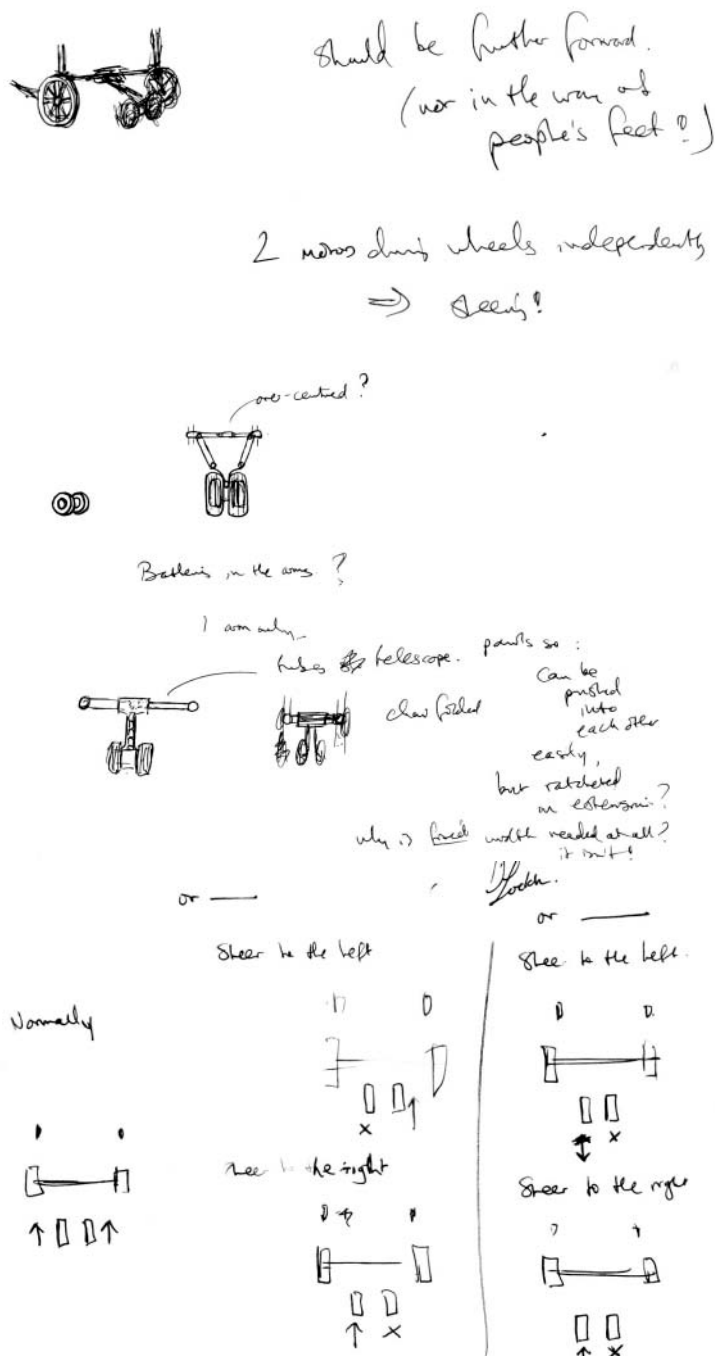 Should be further forward.
(not in the way of
people's feet?)
2 motors driving wheels independently
⇒ steering!
over-centred?
Batteries in the arms?
1 arm only
tubes telescope. pawls so:
can be
pushed
into
each other
easily,
but ratcheted
in extension?
chair folded
why is fixed width needed at all?
it isn't!
or
or
Steer to the left
Steer to the left.
Normally
x
x
Steer to the right
Steer to the right
x
x